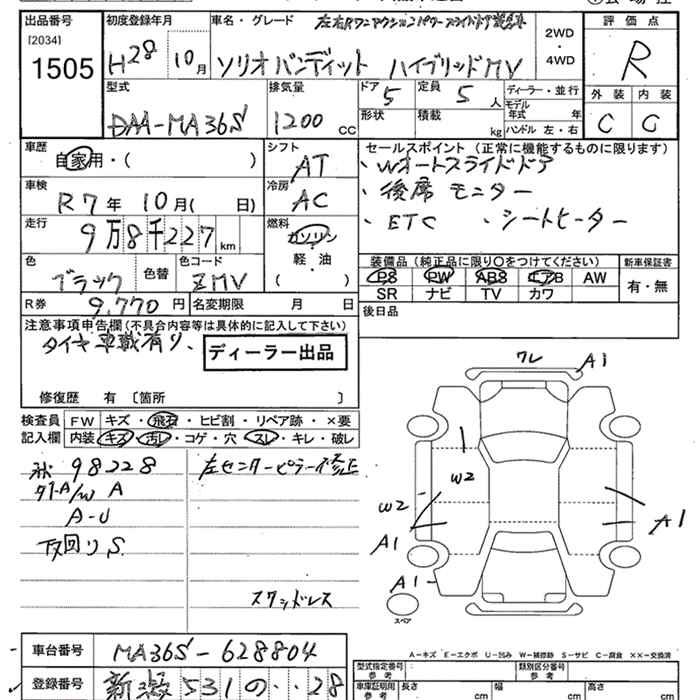 出品番号
[2034]
1505
初度登録年月
H28 10月
車名・グレード
ソリオバンディット ハイブリッドMV
2WD
・
4WD
評価点
R
外装 内装
C C
型式
DAA-MA36S
排気量
1200 CC
ドア
5
定員
5 人
形状
積載
kg
ディーラー・並行
モデル
年式 年
ハンドル 左・右
車歴
自家用・( )
シフト
AT
セールスポイント (正常に機能するものに限ります)
・Wオートスライドドア
・後席モニター
・ETC ・シートヒーター
車検
R7年 10月( 日)
冷房
AC
走行
9万8千227km
燃料
ガソリン
・
軽・油
( )
色
ブラック
色替
色コード
ZMV
装備品 (純正品に限り○をつけてください)
PS PW ABS エアB AW
SR ナビ TV カワ
新車保証書
有・無
R券 9,770円
名変期限 月 日
後日品
注意事項申告欄(不具合内容等は具体的に記入して下さい)
ディーラー出品
修復歴 有〔箇所 〕
検査員
記入欄
FW キズ・飛石・ヒビ割・リペア跡・×要
内装 キズ・汚レ・コゲ・穴・スレ・キレ・破レ
98228
左センターピラー修正
A
A-U
下回りS
スタッドレス
ワレ A1
W2
W2
A1
A1
A1
スペア
A-キズ E-エクボ U-凹み W-補修跡 S-サビ C-腐食 ××-交換済
車台番号 MA36S-628804
登録番号 531 の ・・28
型式指定番号
参考
類別区分番号
参考
車庫証明用
参考
長さ cm
幅 cm
高さ cm